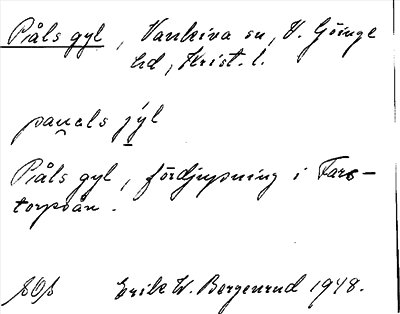 Påls gyl, Vankiva sn, V. Göinge
hd, Krist. l.
pau̯els jýl
Påls gyl, fördjupning i Fars-
torpsån.
Erik W. Bergenrud 1948.